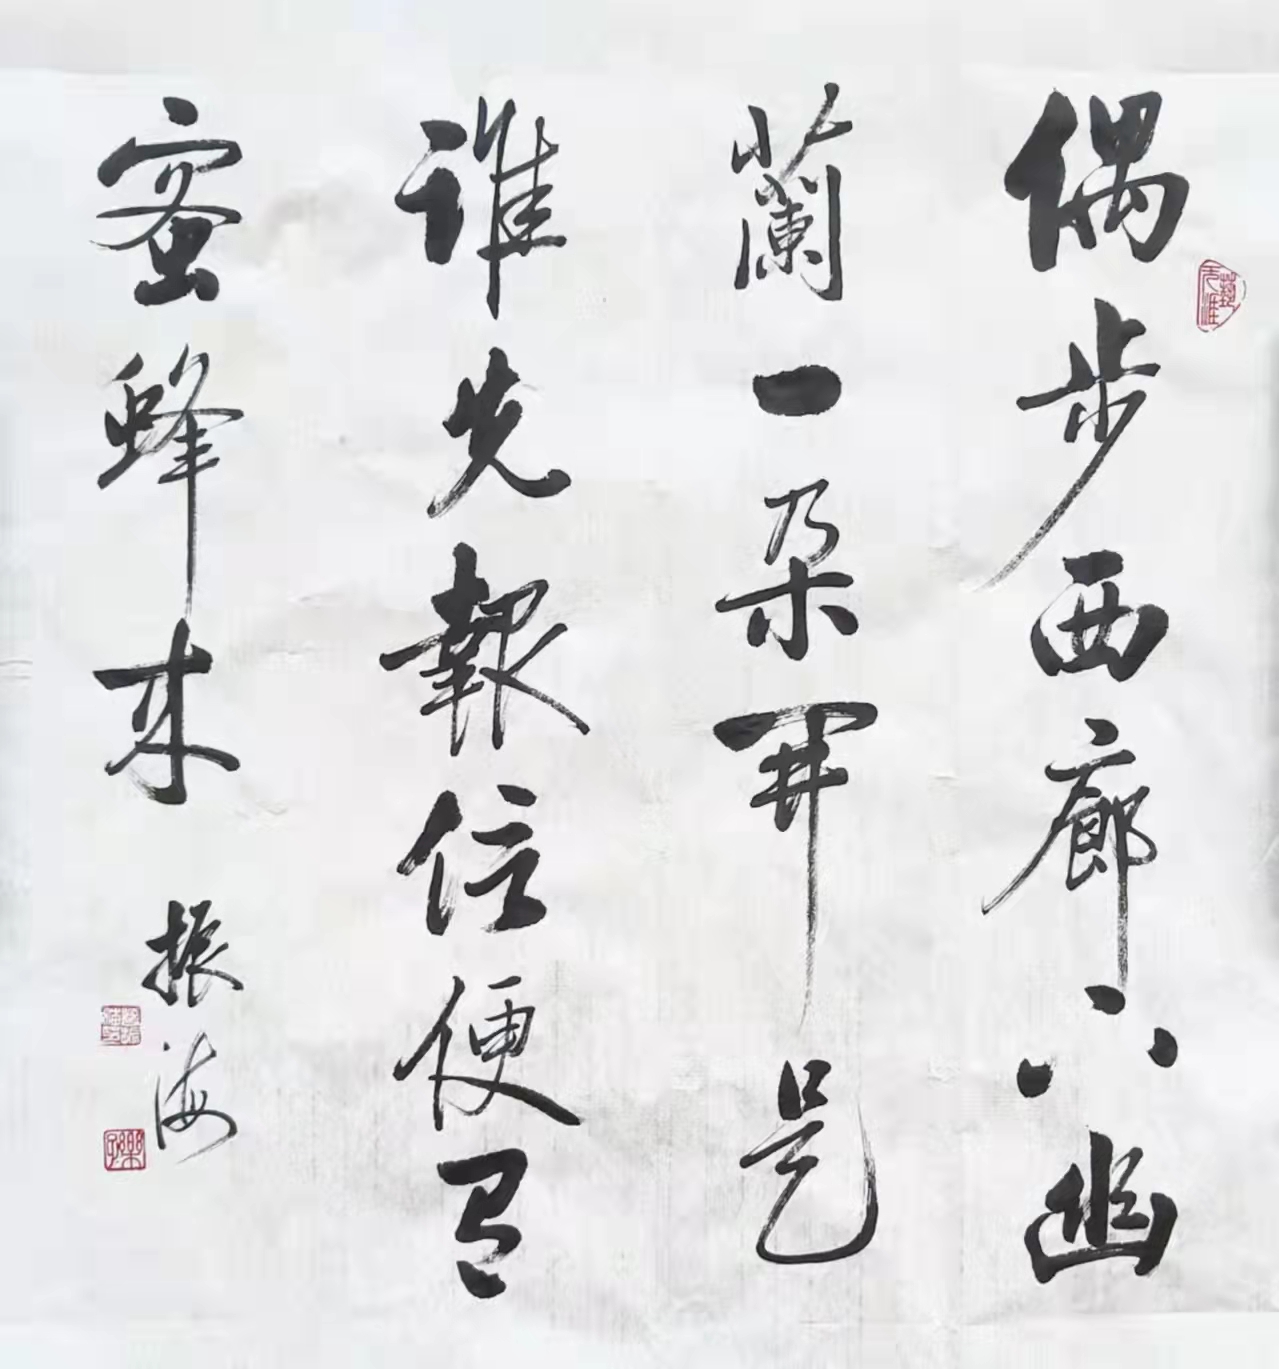 偶步西廊下幽
蘭一朵開是
誰先報信便有
蜜蜂来
振海